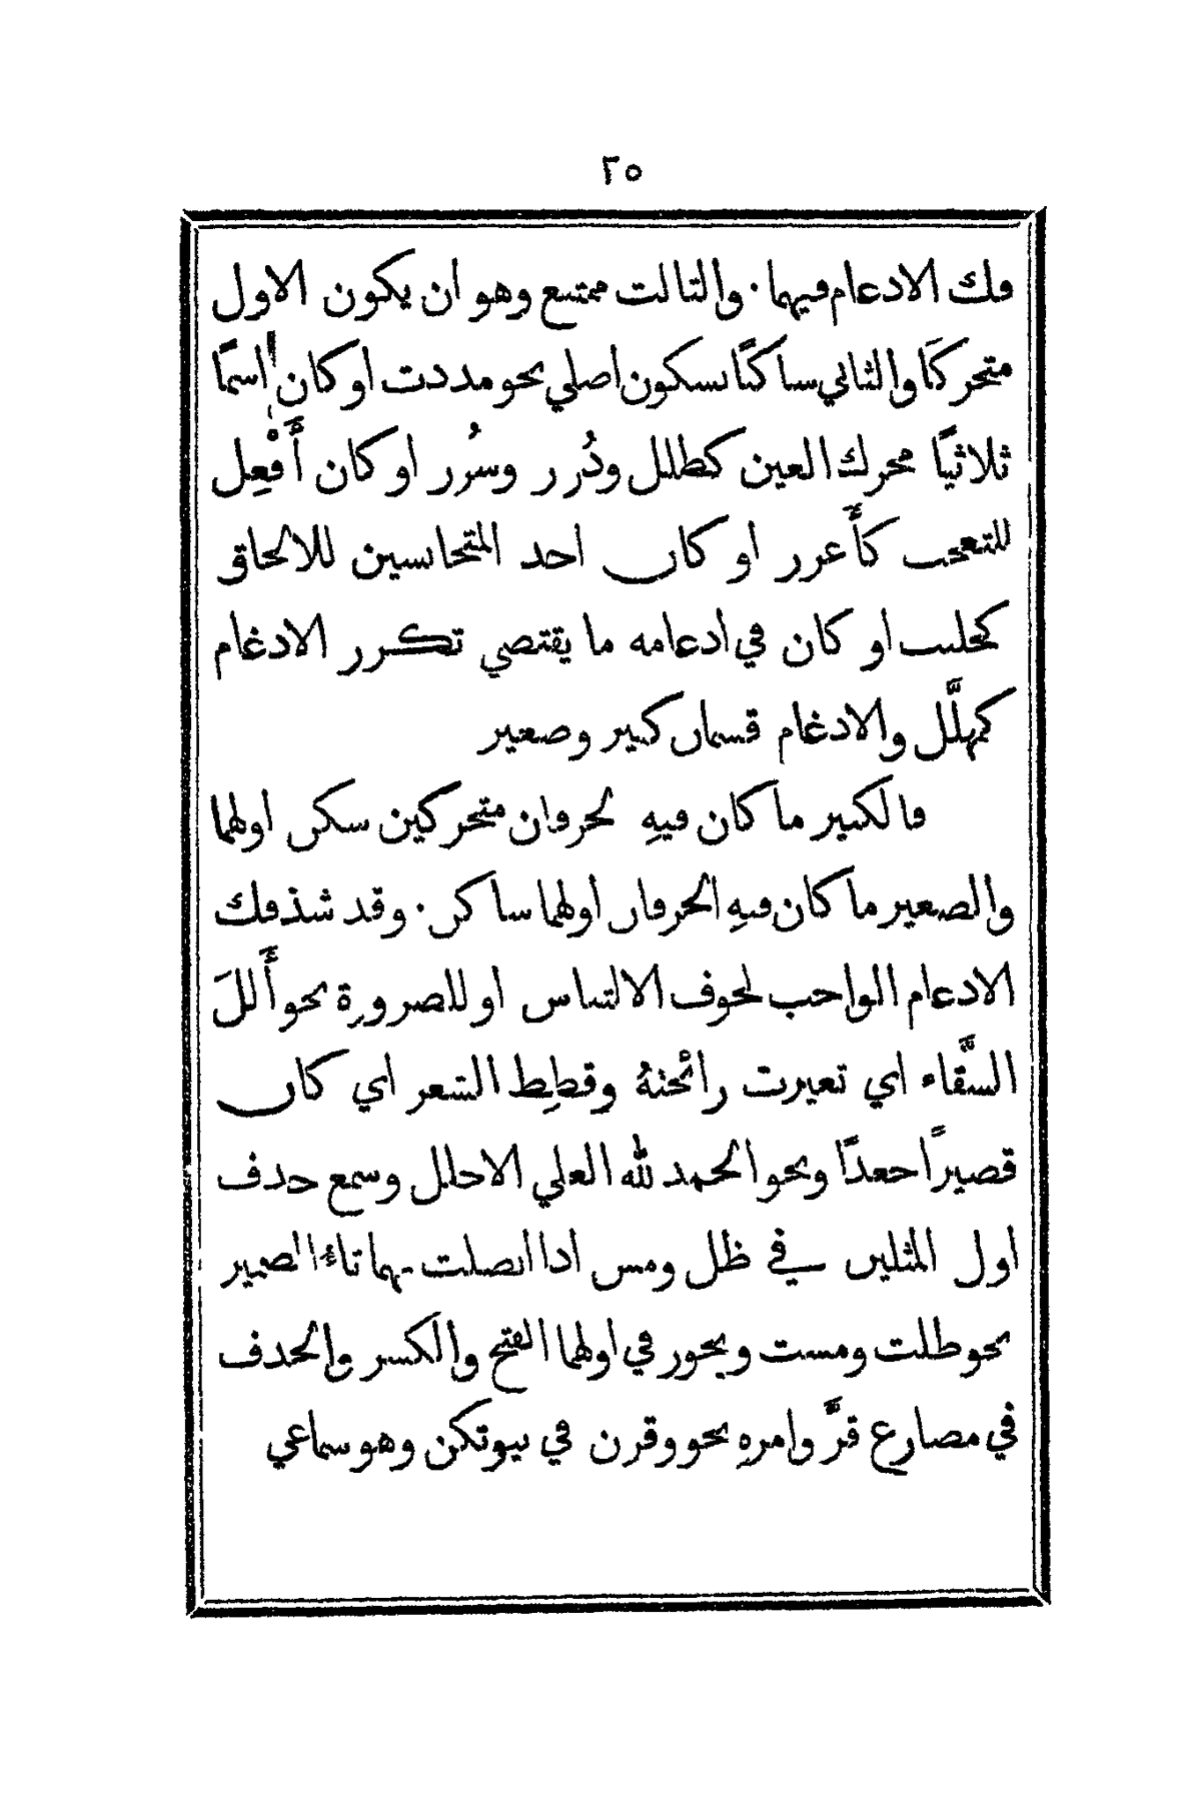 ٢٥
فك الادغام فيهما · والثالث ممتنع وهو ان يكون الاول
متحركَا والثاني ساكنًا بسكون اصلي نحو مددت او كان اسمًا
ثلاثيًا محرك العين كطلل ودُرر وسُرر او كان أَفْعِل
للتعجب كأَغرر او كان احد المتجانسين للالحاق
كجلبب او كان في ادغامه ما يقتضي تكرر الادغام
كهلَّل والادغام قسمان كبير وصغير
فالكبير ما كان فيهِ لحرفان متحركين سكن اولهما
والصغير ما كان فيهِ الحرفان اولهما ساكن · وقد شذ فك
الادغام الواجب لخوف الالتباس او للضرورة نحو أَللَ
السَّقاء اي تغيرت رائحتهُ وقطِط الشعر اي كان
قصيرًا جعدًا ونحو الحمد لله العلي الاجلل وسمع حذف
اول المثلين في ظل ومس اذا اتصلت بهما تاءُ الضمير
نحو ظلت ومست ويجوز في اولهما الفتح والكسر والحذف
في مضارع قرَّ وامرهِ نحو وقرن في بيوتكن وهو سماعي